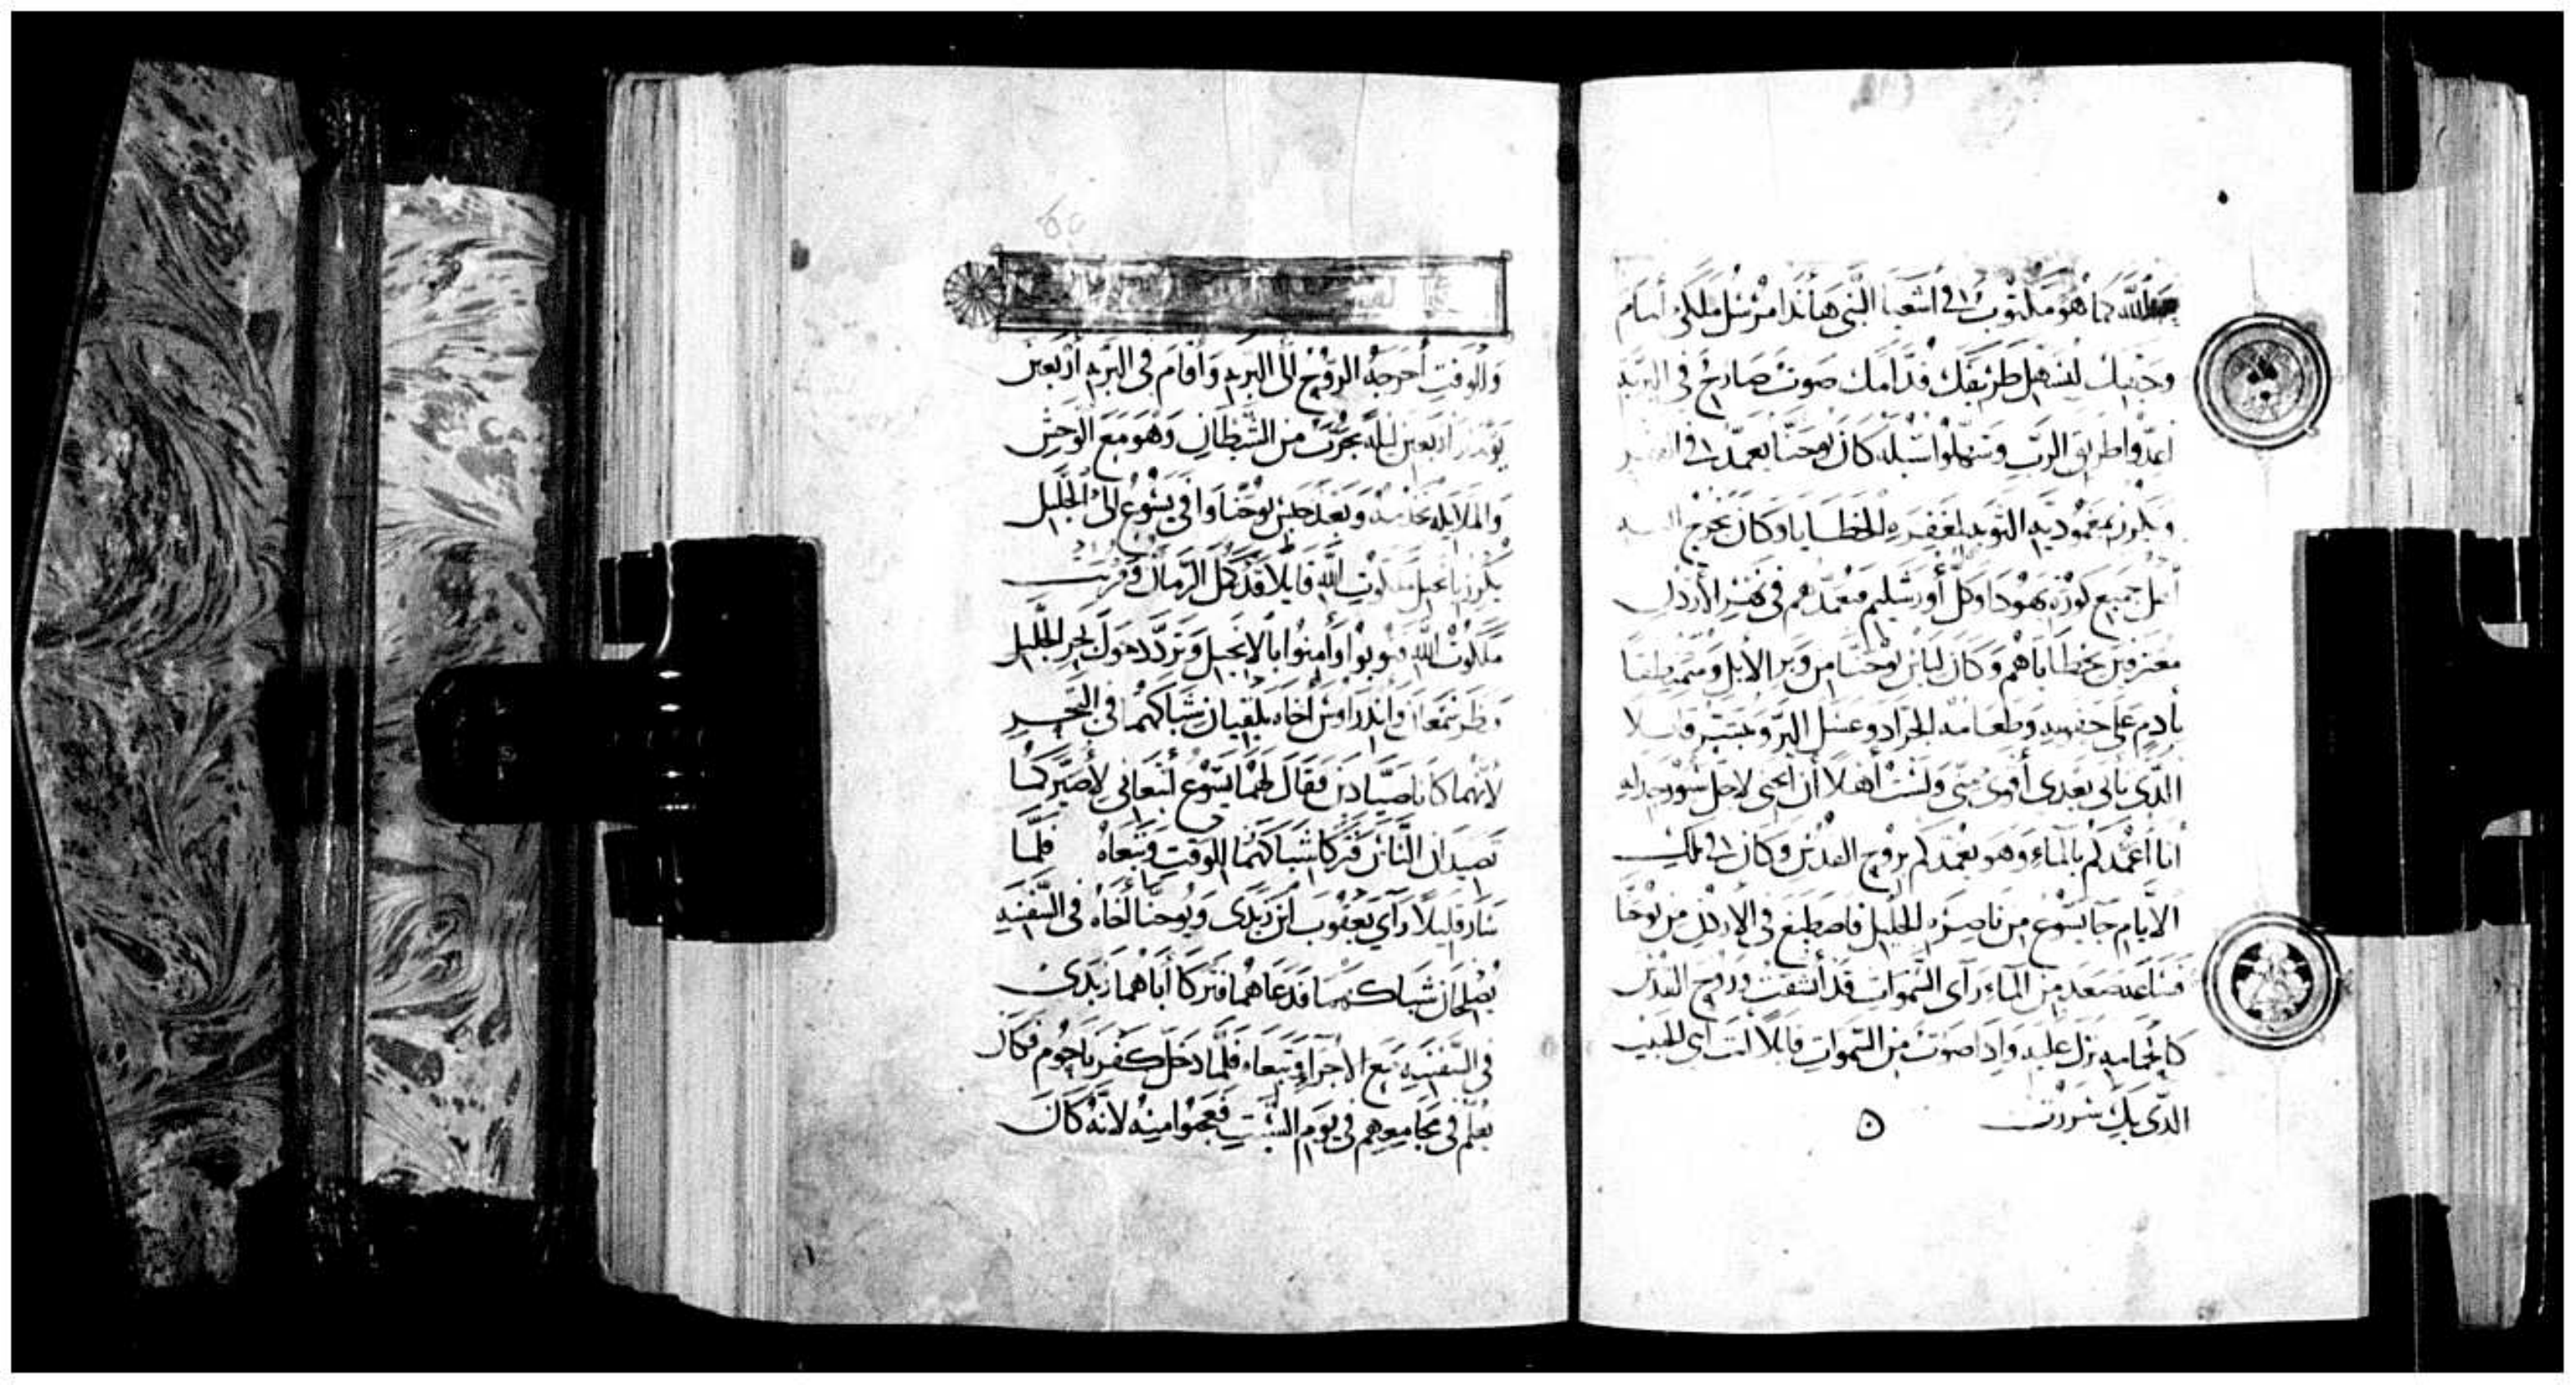 الله كما هو مكتوب في اشعيا النبي هأنذا مرسل ملاكي أمام
وجهك ليسهل طريقك قدامك صوت صارخ في البريه
اعدوا طريق الرب وسهلوا سبله كان يوحنا يعمد في القفر
ويكرز بمعموديه التوبه لمغفره الخطايا وكان يخرج اليه
أهل جميع كورة يهوذا وكل أورشليم فيعمدهم في نهر الأردن
معترفين بخطاياهم وكان لباس يوحنا من وبر الابل ومتمنطقا
بأدم على حقويه وطعامه الجراد وعسل البر وحبش قايلا
الذى يأتى بعدى أقوى منى ولست أهلا أن انحنى لاحل سيور حذايه
أنا أعمدكم بالماء وهو يعمدكم بروح القدس وكان في تلك
الايام جا يسوع من ناصره الجليل فاصطبغ في الاردن من يوحنا
فساعه صعد من الماء رآى السموات قد أنشقت وروح القدس
كالحمامه نزل عليه واذا صوت من السموات قايلا انت ابنى الحبيب
الذى بك سررت
وللوقت أخرجه الروح الى البريه وأقام فى البريه أربعين
يومًا واربعين ليله يجرب من الشيطان وهو مع الوحش
والملايكه تخدمه وبعد حبس يوحنا وافى يسوع الى الجليل
يكرز بانجيل ملكوت الله قايلا قد كمل الزمان وقربت
ملكوت الله فتوبوا وأمنوا بالانجيل وتردد حول بحر الجليل
ونظر سمعان واندراوس أخاه يلقيان شباكهما فى البحر
لأنهما كانا صيادين فقال لهما يسوع أتبعانى لأصيركما
تصيدان الناس فتركا شباكهما للوقت وتبعاه فلما
سار قليلا رآى يعقوب ابن زبدى ويوحنا أخاه فى السفينه
يصلحان شباكهما فدعاهما فتركا أباهما زبدى
فى السفينه مع الاجراء وتبعاه فلما دخل كفرناحوم فكان
يعلم فى مجامعهم فى يوم السبت فعجبوا منه لأنه كان